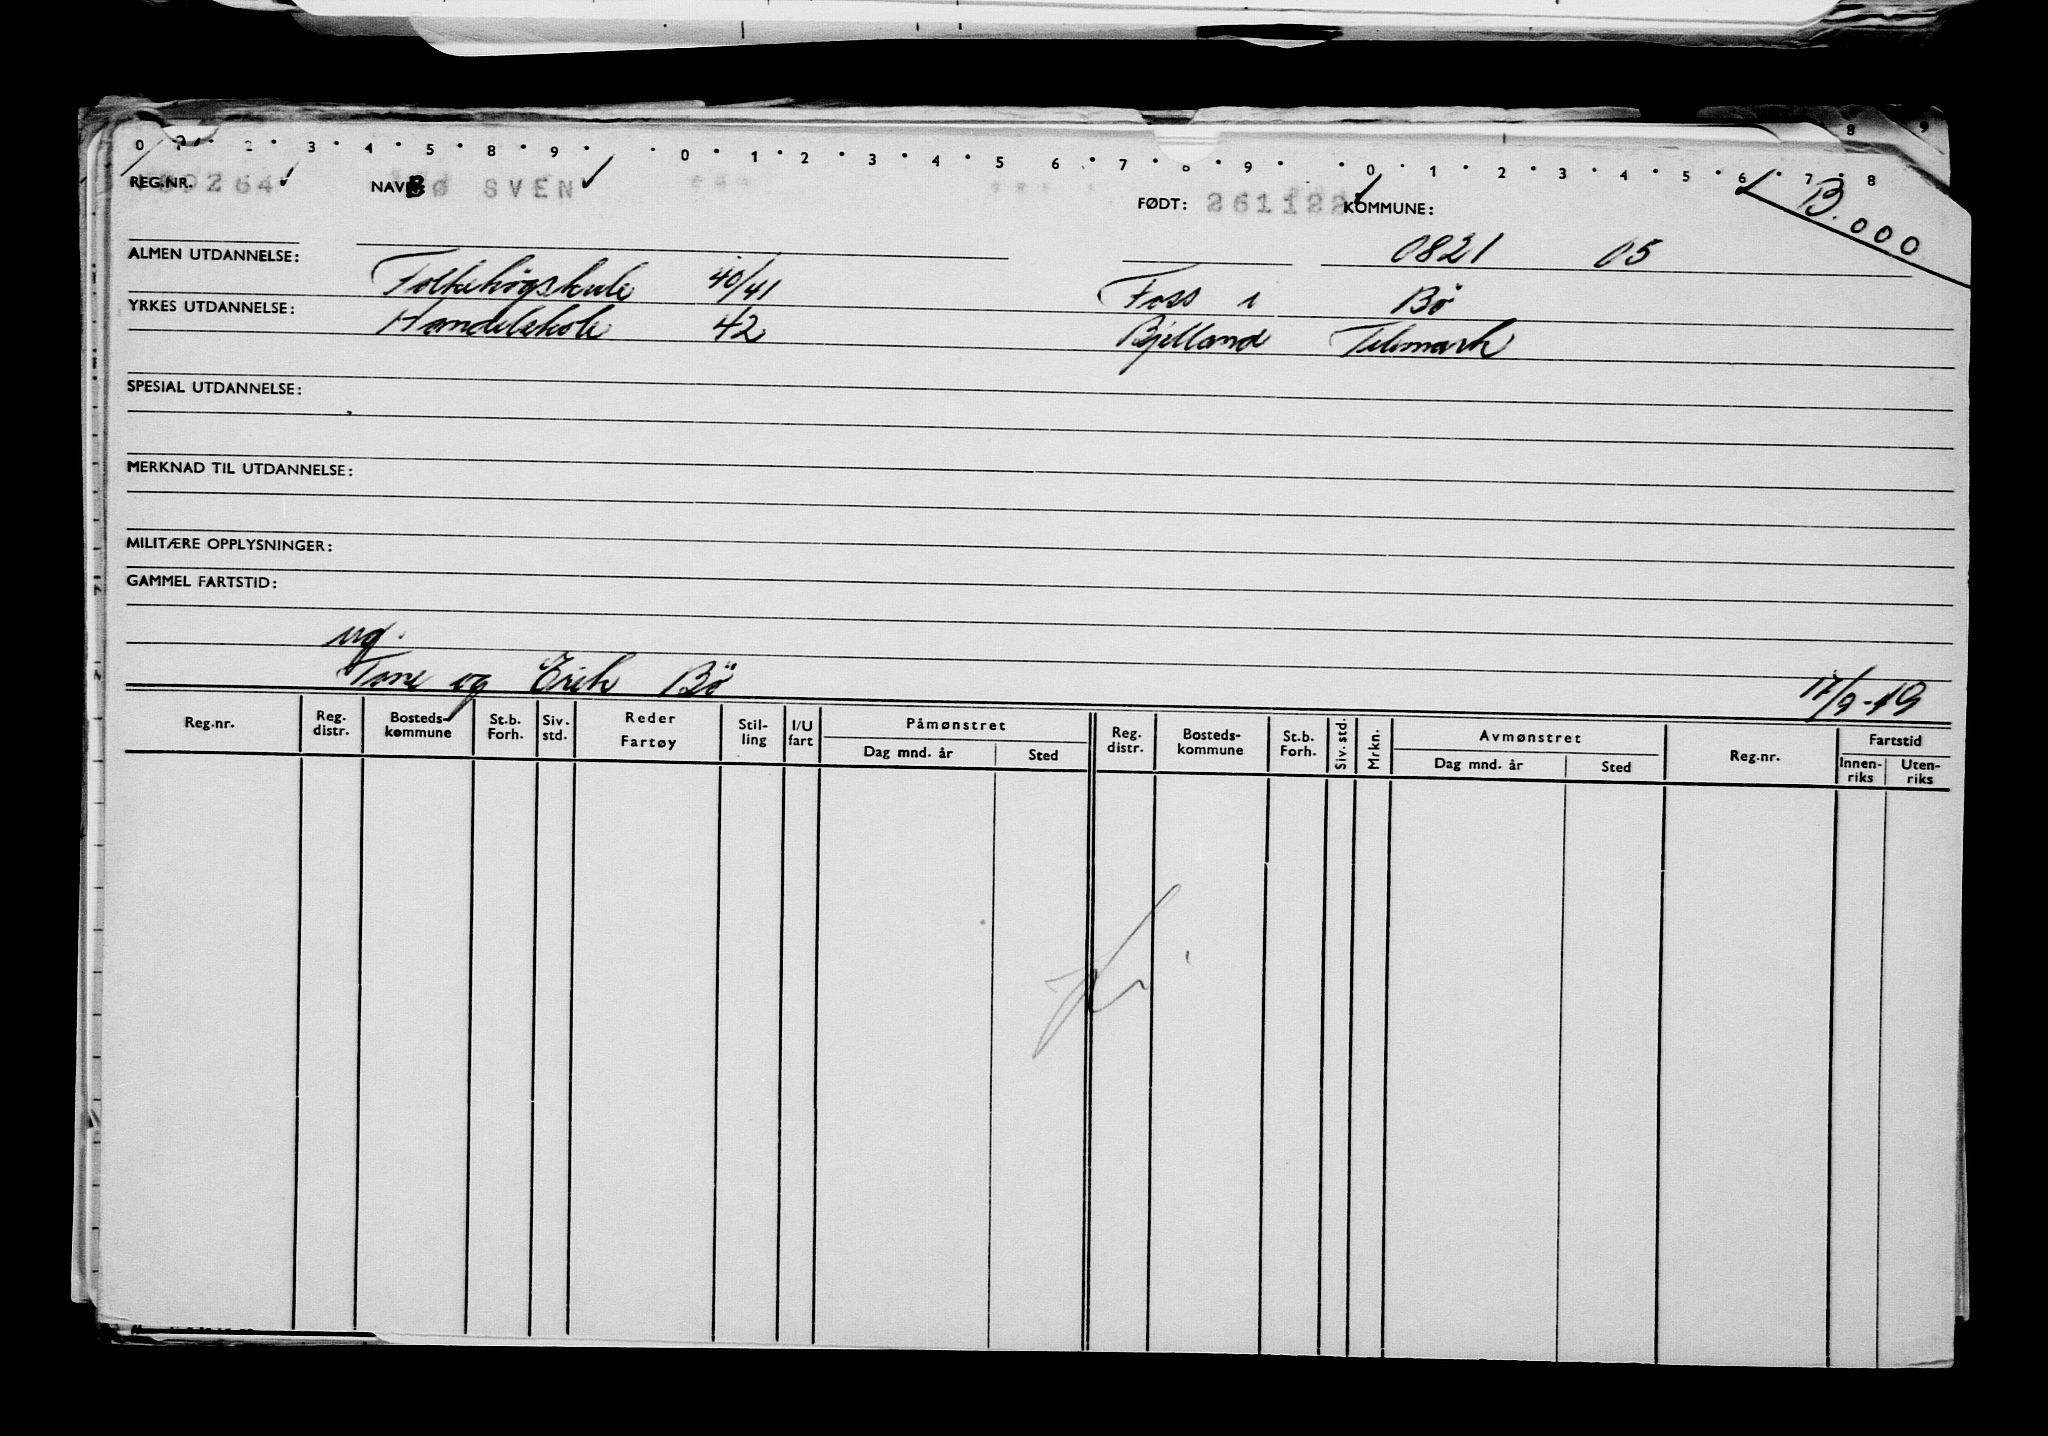 0 · · 2 · 3 · 4 · 5 · 8 · 9 · · 0 · 1 · 2 · 3 · 4 · 5 6 · 7 · 8 · 9 · · 0 · 1 · 2 · 3 · 4 · 5 · 6 · 7 · 8 8 9
REG.NR. 264 NAVN: BØ SVEN *** FØDT: 261122 KOMMUNE: B.000
ALMEN UTDANNELSE: 0821 05
Folkehøgskule 40/41 Foss i Bö
YRKES UTDANNELSE: Handelskole 42 Bjelland Telemark
SPESIAL UTDANNELSE:
MERKNAD TIL UTDANNELSE:
MILITÆRE OPPLYSNINGER:
GAMMEL FARTSTID:
ug.
Tone og Erik Bö 17/9-49
Reg.nr. Reg. distr. Bosteds-kommune St.b. Forh. Siv. std. Reder Fartøy Stil-ling I/U fart Påmønstret Dag mnd. år Sted Reg. distr. Bosteds-kommune St.b. Forh. Siv. std. Mrkn. Avmønstret Dag mnd. år Sted Reg.nr. Fartstid Innen-riks Uten-riks